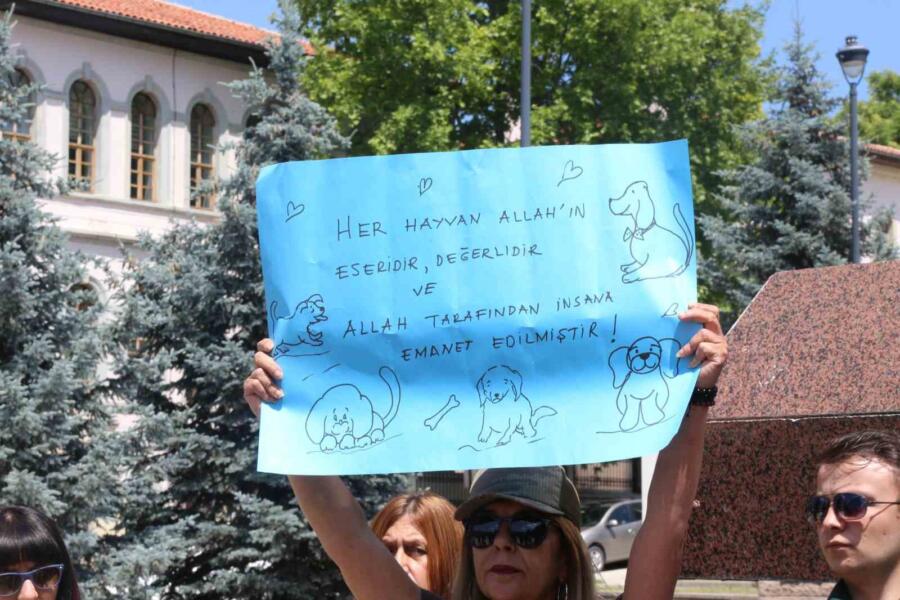 HER HAYVAN ALLAH'IN
ESERİDİR, DEĞERLİDİR
VE
ALLAH TARAFINDAN İNSANA
EMANET EDİLMİŞTİR!